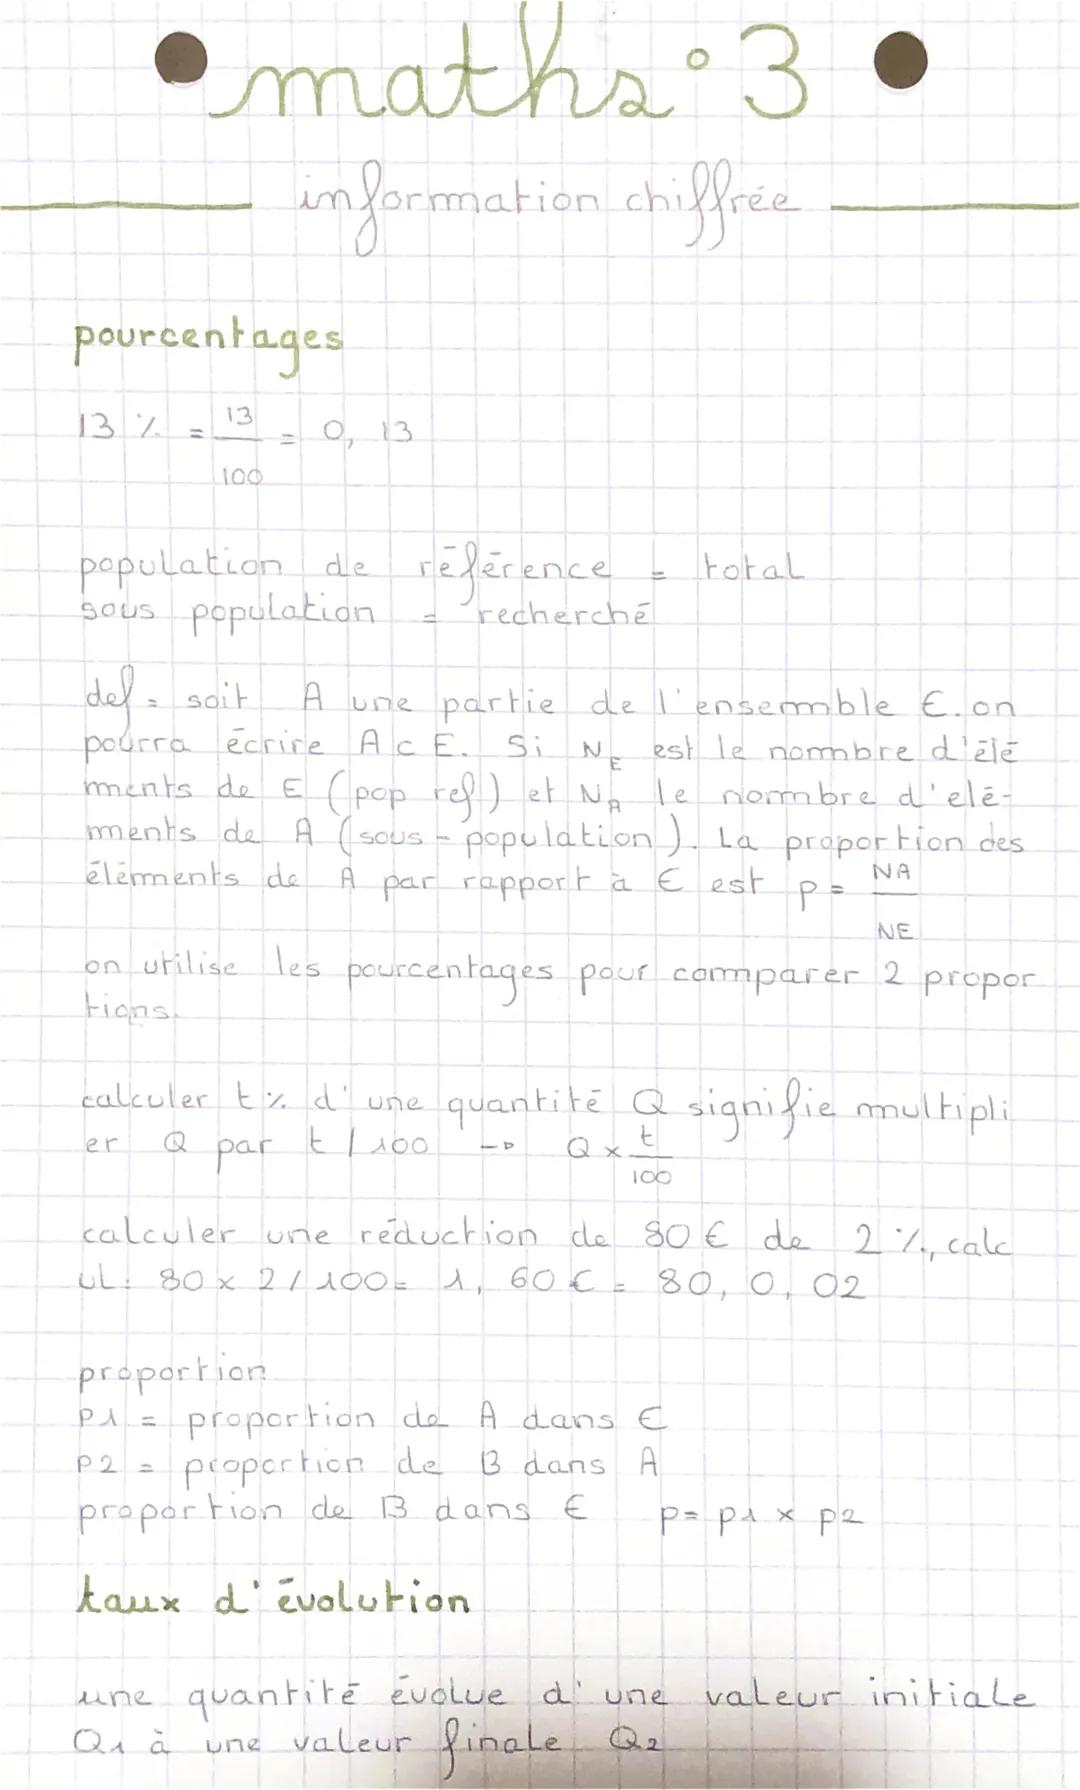 maths: 3
information chiffrée
pourcentages
13 % = 13/100 = 0, 13
population de référence = total
sous population = recherché
def = soit A une partie de l'ensemble E. on
pourra écrire A ⊂ E. Si NE est le nombre d'élé
ments de E (pop ref) et NA le nombre d'elé-
ments de A (sous-population). La proportion des
éléments de A par rapport à E est p = NA/NE
on utilise les pourcentages pour comparer 2 propor
tions.
calculer t % d'une quantité Q signifie multipli
er Q par t / 100 → Q × t/100
calculer une réduction de 80 € de 2 %, calc
ul: 80 × 2 / 100 = 1, 60 € = 80, 0, 02
proportion
p1 = proportion de A dans E
p2 = proportion de B dans A
proportion de B dans E p = p1 × p2
taux d'évolution
une quantité évolue d'une valeur initiale
Q1 à une valeur finale Q2